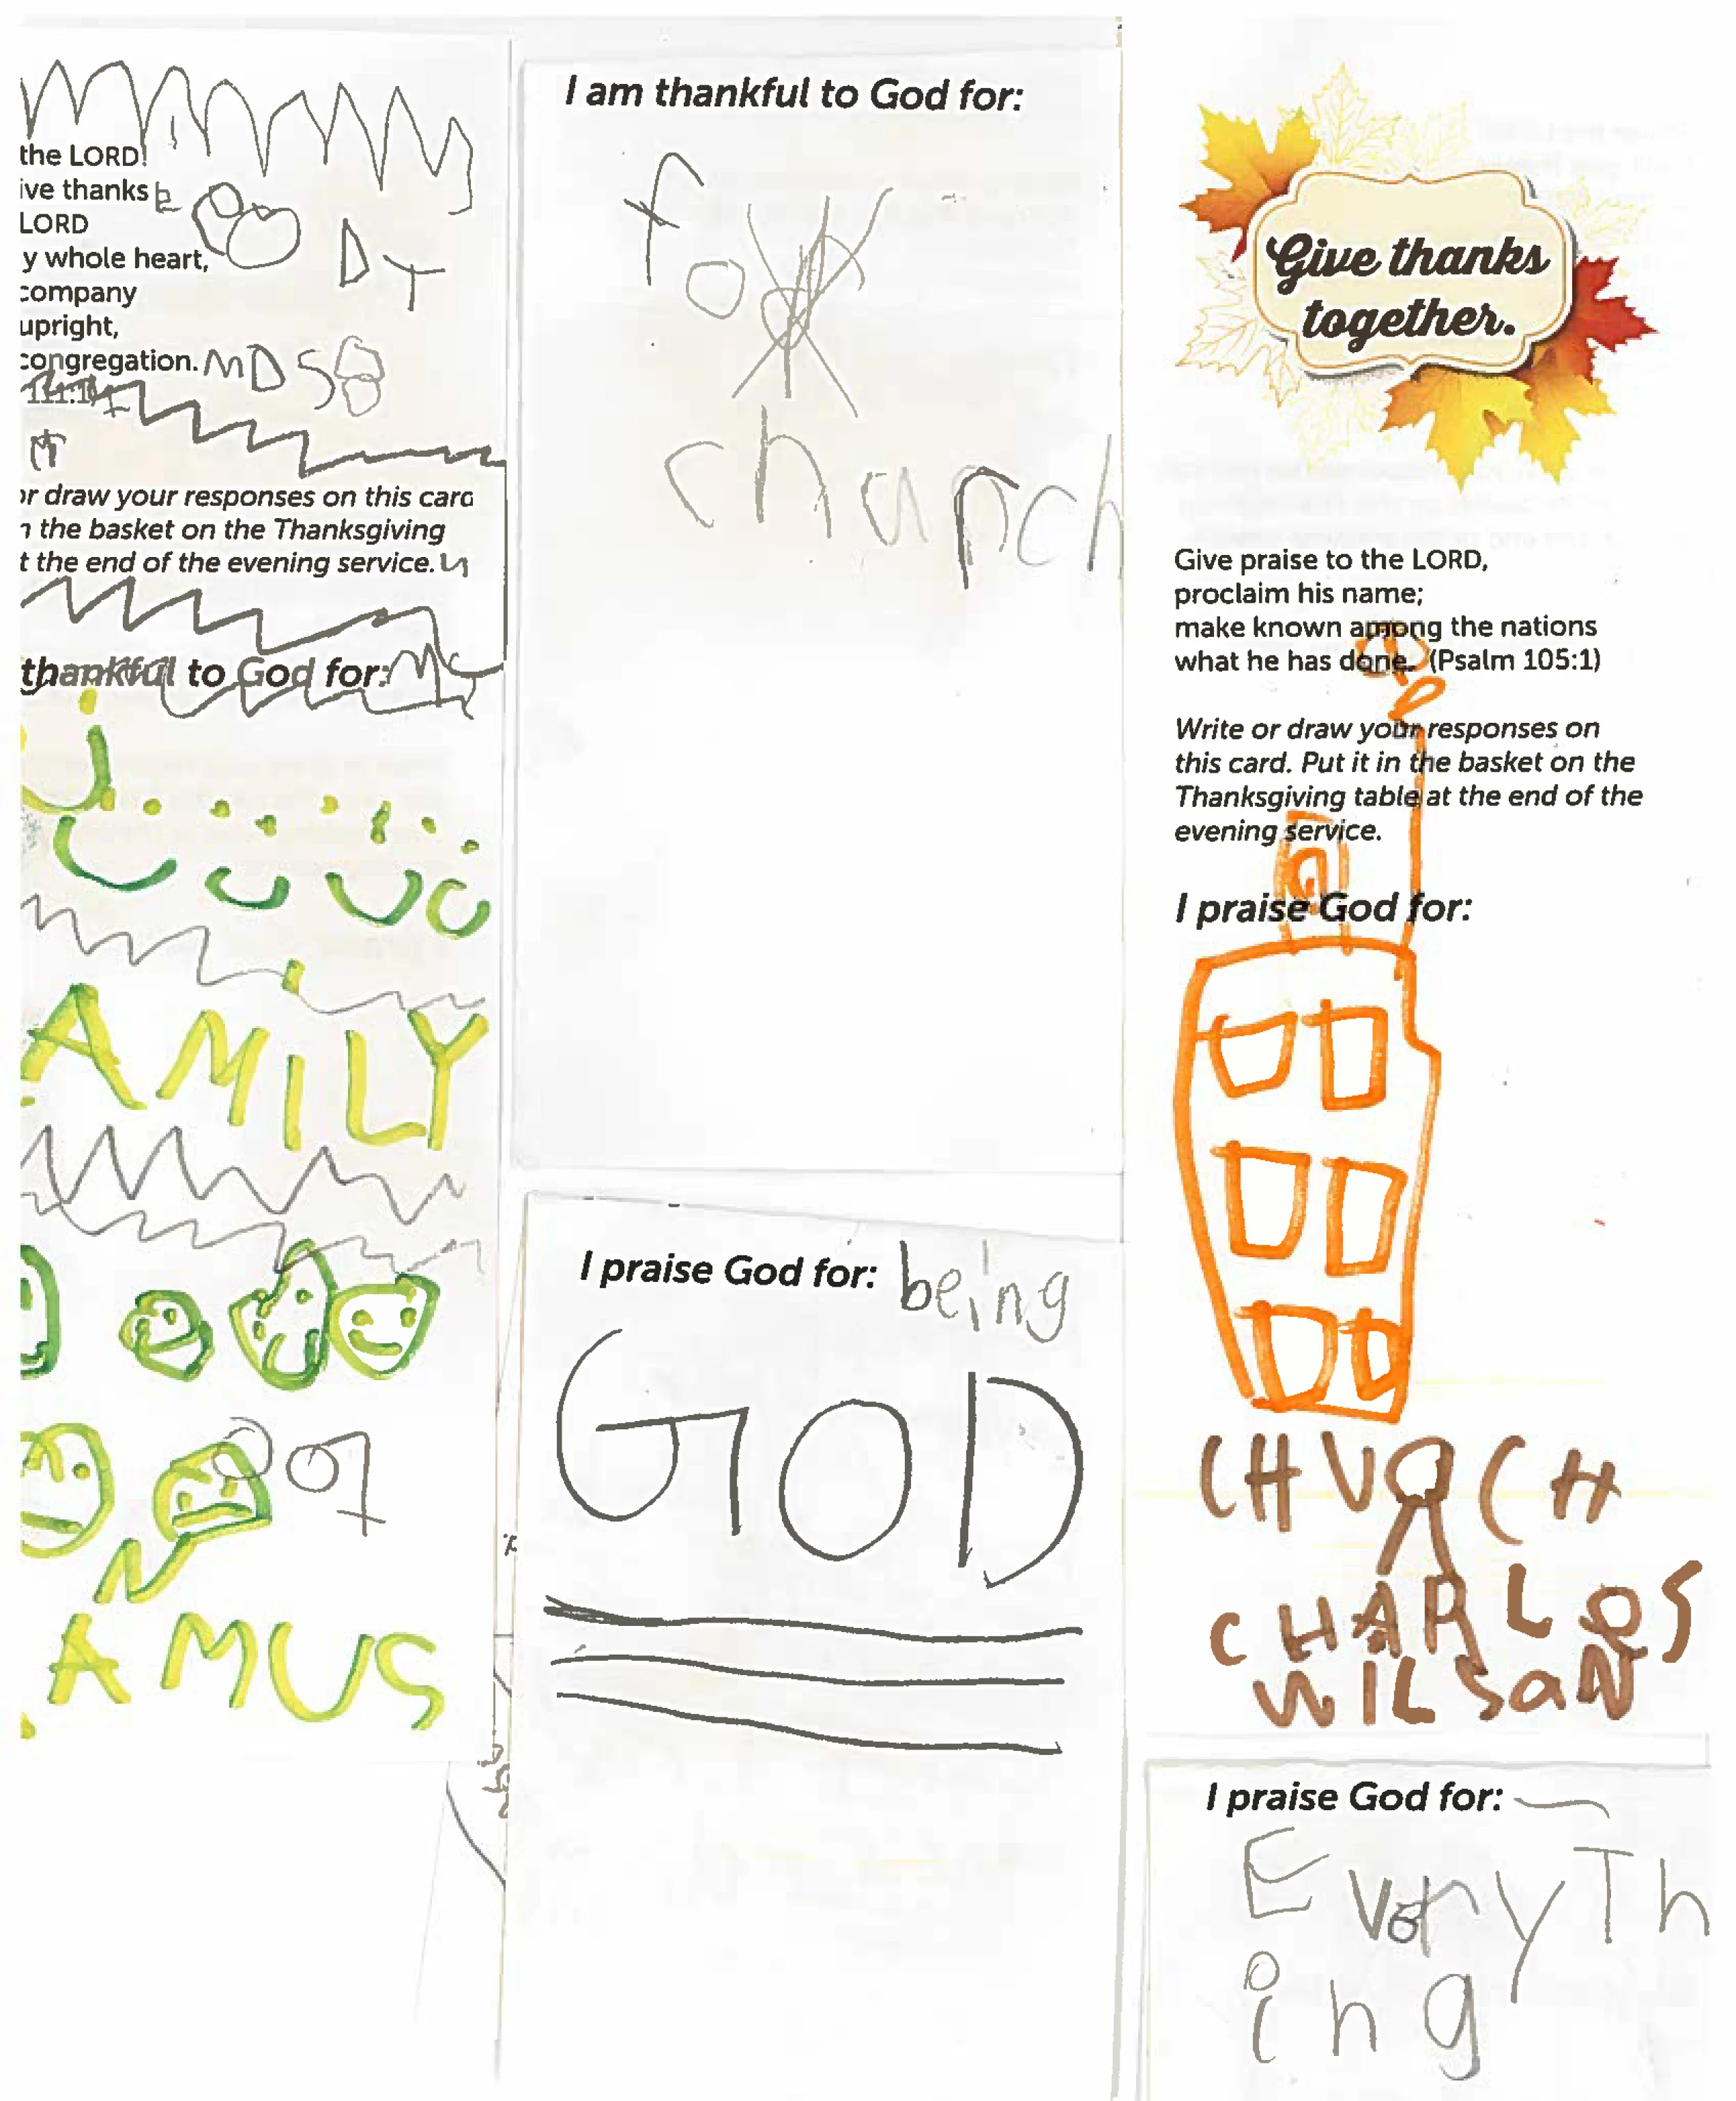 the LORD!
ive thanks
LORD
y whole heart,
company
upright,
congregation. MDS8
or draw your responses on this card
n the basket on the Thanksgiving
t the end of the evening service.
thankful to God for:
AMILY
AMUS
I am thankful to God for:
church
I praise God for: being
GOD
Give thanks
together.
Give praise to the LORD,
proclaim his name;
make known among the nations
what he has done. (Psalm 105:1)
Write or draw your responses on
this card. Put it in the basket on the
Thanksgiving table at the end of the
evening service.
I praise God for:
CHURCH
CHARLOS
WILSaN
I praise God for:
EveryTh
ing